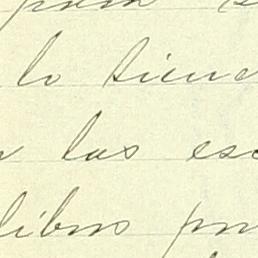 para s
lo tiene
n las esc
libro pr